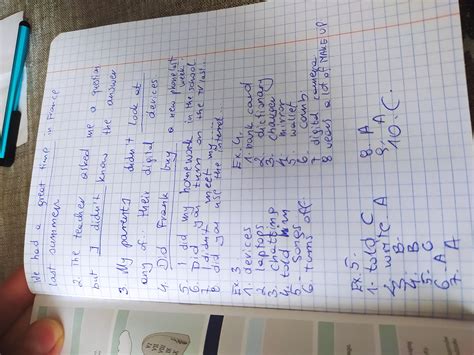 We had a great time in France
last summer.
2. The teacher asked me a question
but I didn't know the answer
3. My parents didn't look at
any of... their digital devices
4. Did Frank buy a new phone last
week
5. I did my homework in the school
6. Did you turn on the TV last...
7. I didn't meet my
8. did you use the internet...
Ex. 3
1. devices
2. laptops
3. chatting
4. told him
5. songs
6. turns off
Ex. 4.
1. bank card
2. dictionary
3. charger
4. mirror
5. wallet
6. comb
7. digital camera
8. years old of MAKE UP
Ex. 5.
1. told C
2. write A
3. B
4. B.
5. C
6. A A
7.
8. A
9. A
10. C.